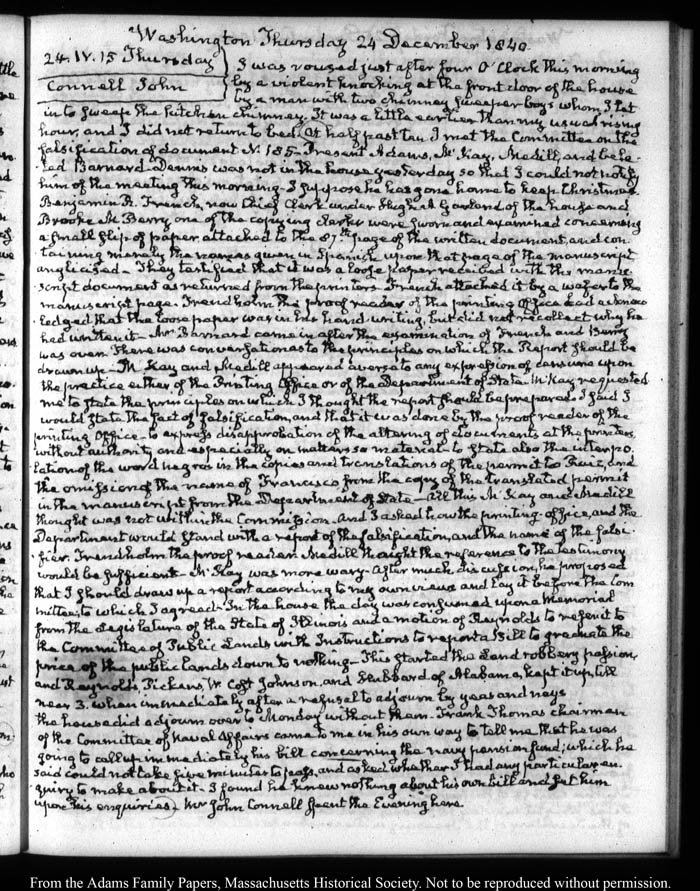 Washington Thursday 24 December 1840.
24. IV. 15 Thursday
Connell John
I was roused just after four O'Clock this morning
by a violent knocking at the front door of the house
by a man with two chimney sweeper boys whom I let
in to sweep the kitchen chimney. It was a little earlier than my usual rising
hour, and I did not return to bed. At half past ten I met the Committee on the
falsification of document N. 185. Present Adams, McKay, Medill, and bela-
ted Barnard. Dennis was not in the house yesterday so that I could not notify
him of the meeting this morning. I suppose he has gone home to keep Christmas.
Benjamin B. French, now Chief Clerk under Hugh A Garland of the house and
Brooke M. Berry one of the copying clerks were sworn and examined concerning
a small slip of paper attached to the 87th page of the written document, and con-
taining merely the names given in Spanish upon that page of the manuscript
anglicised. They testified that it was a loose paper received with the manu-
script document as returned from the printers. French attached it by a wafer to the
manuscript page. Trenholm the proof reader of the printing Office had acknow-
ledged that the loose paper was in his hand writing, but did not recollect why he
had written it. Mr Barnard came in after the examination of French and Berry
was over. There was conversation as to the principles on which the Report should be
drawn up. McKay and Medill appeared averse to any expression of censure upon
the practice either of the Printing Office or of the Department of State. McKay requested
me to state the principles on which I thought the report should be prepared. I said I
would state the fact of falsification, and that it was done by the proof reader of the
printing Office. to express disapprobation of the altering of documents at the printers,
without authority and especially on matters so material. to state also the interpo-
lation of the word negros in the copies and translations of the permit to Ruiz, and
the omission of the name of Francisco from the copy of the translated permit
in the manuscript from the Department of State. All this McKay and Medill
thought was not within the Commission. And I asked how the printing office, and the
Department would stand with a report of the falsification, and the name of the falsi-
fier. Trenholm the proof reader. Medill thought the reference to the testimony
would be sufficient. McKay was more wary. After much discussion, he proposed
that I should draw up a report according to my own views and lay it before the Com
mittee; to which I agreed. In the house the day was consumed upon a Memorial
from the Legislature of the State of Illinois and a motion of Reynolds to refer it to
the Committee of Public Lands with Instructions to report a Bill to graduate the
price of the public lands down to nothing. This started the Land robbery passion,
and Reynolds, Pickens, W. Cost Johnson, and Hubbard of Alabama, kept it up till
near 3. when immediately after a refusal to adjourn by yeas and nays
the house did adjourn over to Monday without them. Frank Thomas chairman
of the Committee of Naval Affairs came to me in his own way to tell me that he was
going to call up immediately his bill concerning the navy pension fund; which he
said could not take five minutes to pass, and asked whether I had any particular en-
quiry to make about it. I found he knew nothing about his own bill and put him
upon his enquiries. Mr John Connell spent the Evening here.
From the Adams Family Papers, Massachusetts Historical Society. Not to be reproduced without permission.